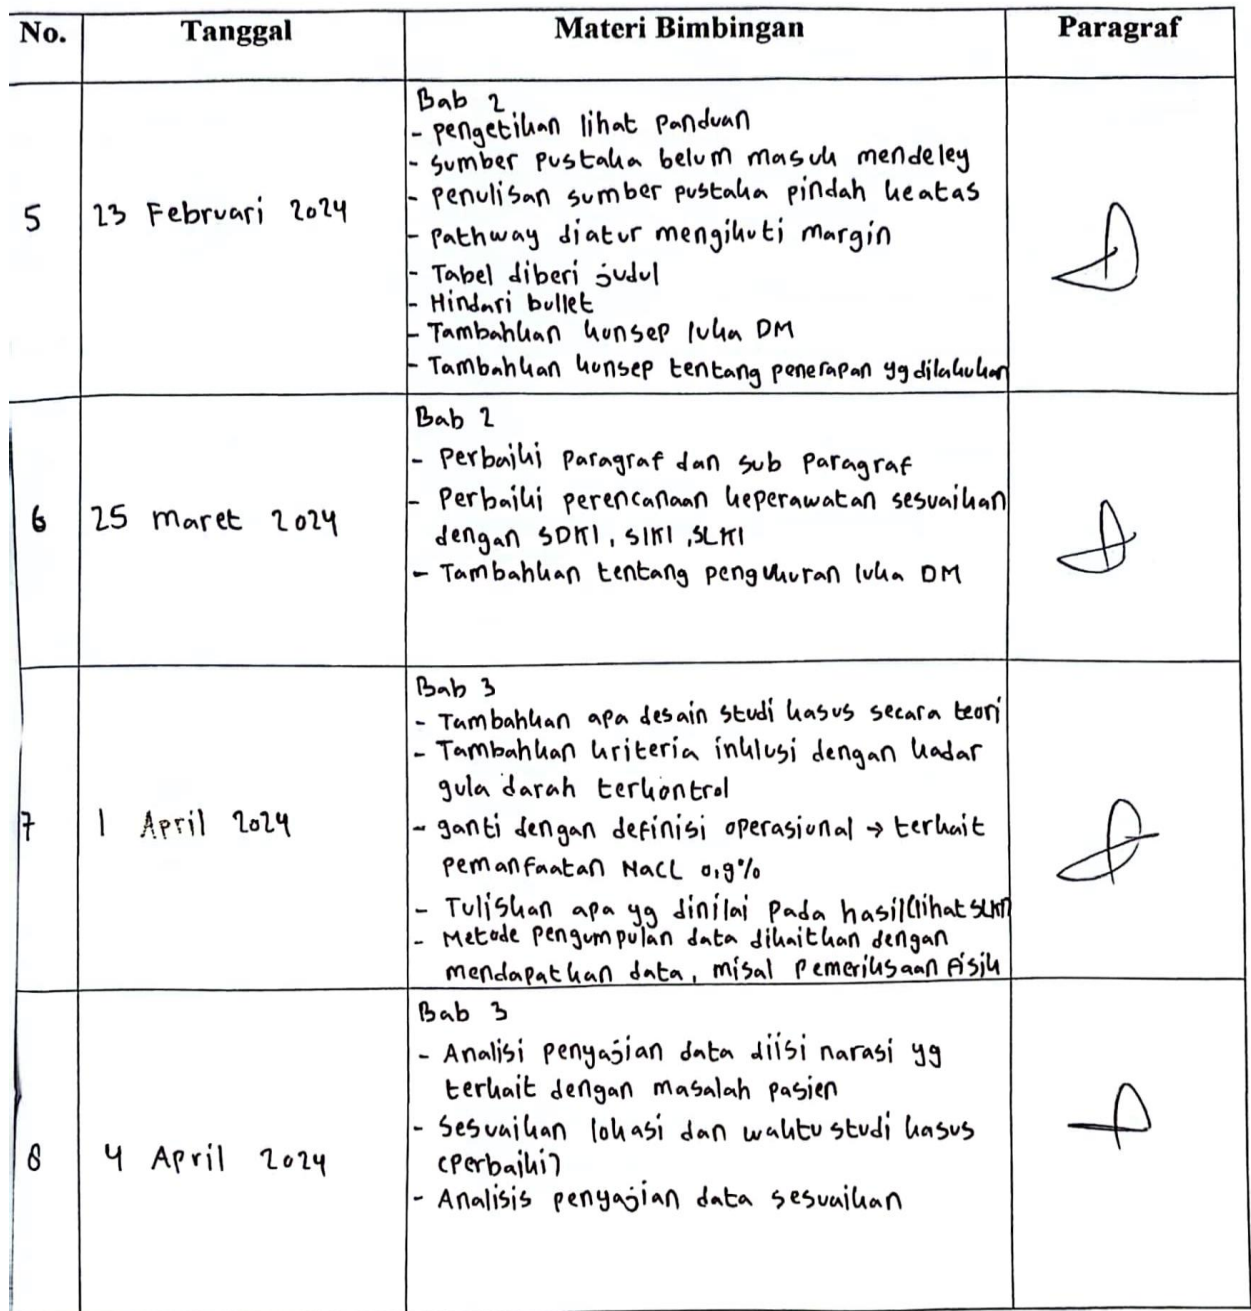 No. Tanggal Materi Bimbingan Paragraf
Bab 2
- pengetikan lihat panduan
- sumber pustaka belum masuk mendeley
- penulisan sumber pustaka pindah keatas
5 23 Februari 2024
- pathway diatur mengikuti margin
- Tabel diberi judul
- Hindari bullet
- Tambahkan konsep luka DM
- Tambahkan konsep tentang penerapan yg dilakukan
Bab 2
- Perbaiki paragraf dan sub paragraf
- Perbaiki perencanaan keperawatan sesuaikan
6 25 maret 2024
dengan SDKI, SIKI, SLKI
- Tambahkan tentang pengukuran luka DM
Bab 3
- Tambahkan apa desain studi kasus secara teori
- Tambahkan kriteria inklusi dengan kadar
gula darah terkontrol
7 1 April 2024
- ganti dengan definisi operasional → terkait
pemanfaatan NaCL 0,9%
- Tuliskan apa yg dinilai pada hasil (lihat SLKI)
- Metode pengumpulan data dikaitkan dengan
mendapatkan data, misal pemeriksaan fisik
Bab 3
- Analisi penyajian data diisi narasi yg
terkait dengan masalah pasien
- Sesuaikan lokasi dan waktu studi kasus
(Perbaiki)
8 4 April 2024
- Analisis penyajian data sesuaikan